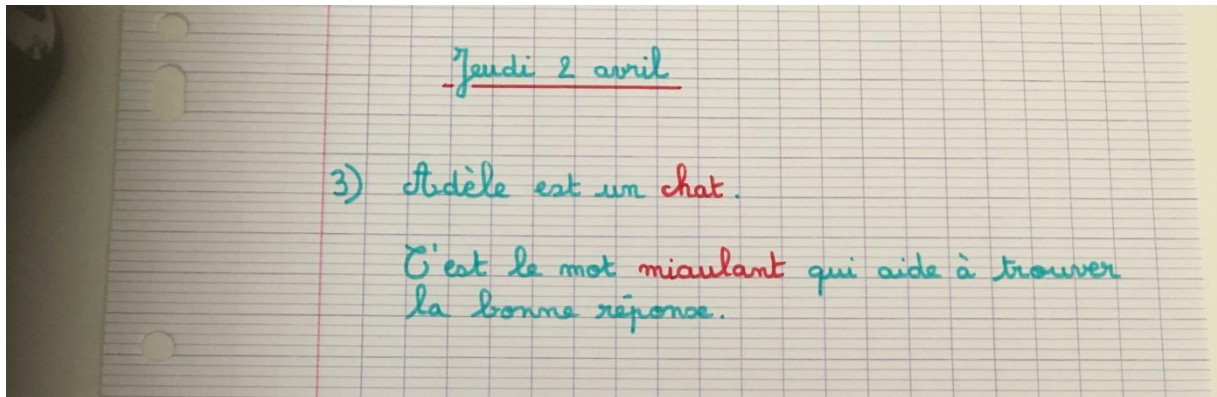 Jeudi 2 avril
3) Adèle est un chat.
C'est le mot miaulant qui aide à trouver
la bonne réponse.